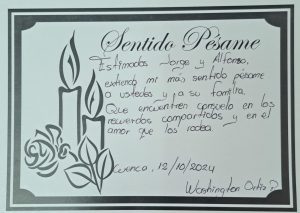 Sentido Pésame
Estimados Jorge y Alfonso,
extiendo mi más sentido pésame
a ustedes y a su familia.
Que encuentren consuelo en los
recuerdos compartidos y en el
amor que los rodea.
Cuenca, 12/10/2024
Washington Ortiz P.